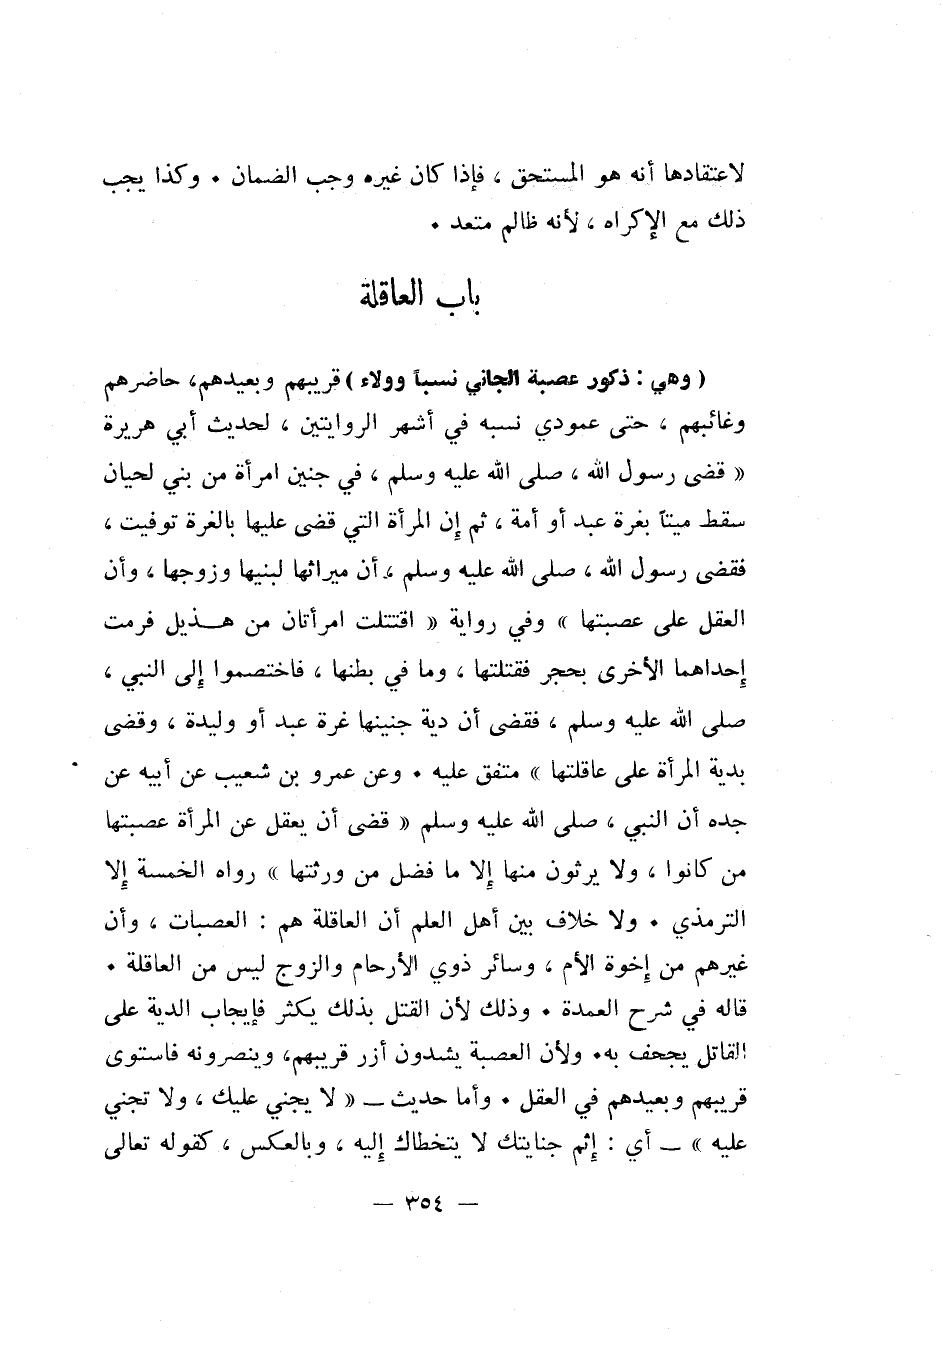 لاعتقادها أنه هو المستحق ، فإذا كان غيره وجب الضمان . وكذا يجب
ذلك مع الإكراه ، لأنه ظالم متعد .
باب العاقلة
( وهي : ذكور عصبة الجاني نسباً وولاء ) قريبهم وبعيدهم، حاضرهم
وغائبهم ، حتى عمودي نسبه في أشهر الروايتين ، لحديث أبي هريرة
« قضى رسول الله ، صلى الله عليه وسلم ، في جنين امرأة من بني لحيان
سقط ميتاً بغرة عبد أو أمة ، ثم إن المرأة التي قضى عليها بالغرة توفيت ،
فقضى رسول الله ، صلى الله عليه وسلم ، أن ميراثها لبنيها وزوجها ، وأن
العقل على عصبتها » وفي رواية « اقتتلت امرأتان من هـذيل فرمت
إحداهما الأخرى بحجر فقتلتها ، وما في بطنها ، فاختصموا إلى النبي ،
صلى الله عليه وسلم ، فقضى أن دية جنينها غرة عبد أو وليدة ، وقضى
بدية المرأة على عاقلتها » متفق عليه . وعن عمرو بن شعيب عن أبيه عن
جده أن النبي ، صلى الله عليه وسلم « قضى أن يعقل عن المرأة عصبتها
من كانوا ، ولا يرثون منها إلا ما فضل من ورثتها » رواه الخمسة إلا
الترمذي . ولا خلاف بين أهل العلم أن العاقلة هم : العصبات ، وأن
غيرهم من إخوة الأم ، وسائر ذوي الأرحام والزوج ليس من العاقلة .
قاله في شرح العمدة . وذلك لأن القتل بذلك يكثر فإيجاب الدية على
القاتل يجحف به. ولأن العصبة يشدون أزر قريبهم، وينصرونه فاستوى
قريبهم وبعيدهم في العقل . وأما حديث ــ « لا يجني عليك ، ولا تجني
عليه » ــ أي : إثم جنايتك لا يتخطاك إليه ، وبالعكس ، كقوله تعالى
— ٣٥٤ —